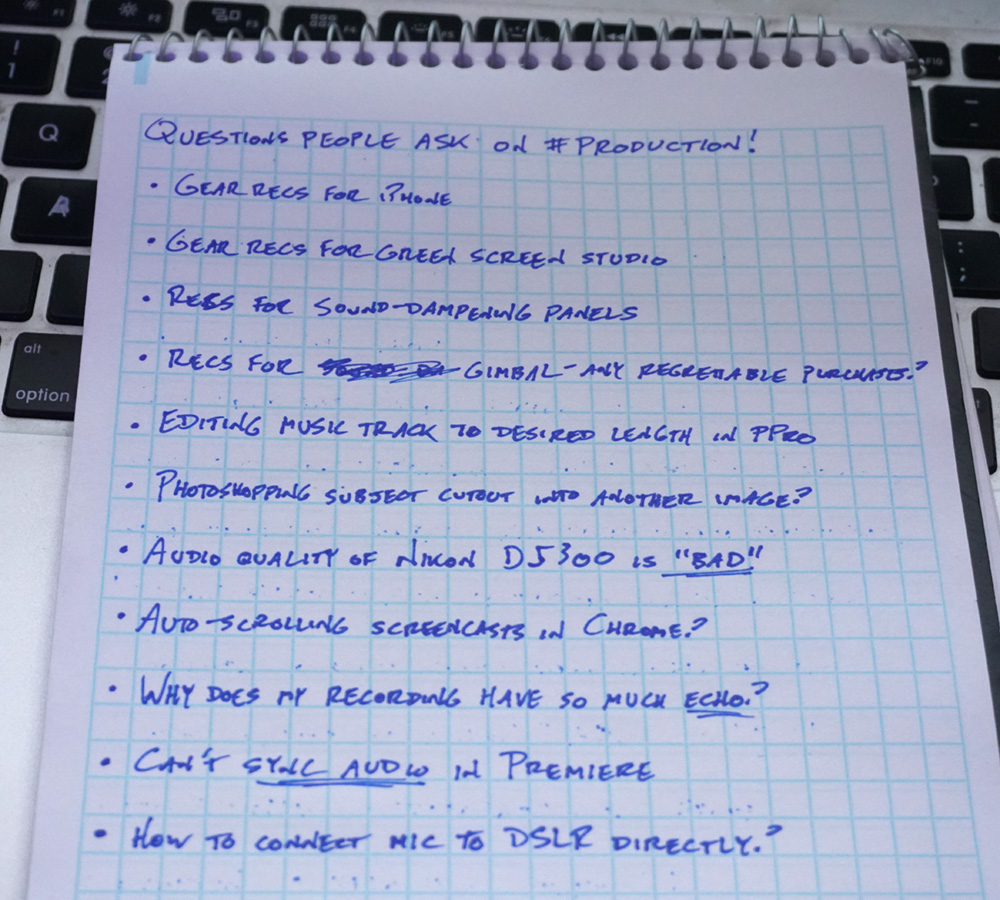 ! 1
F1
F2
F3
F4
F10
Q
A
alt
option
QUESTIONS PEOPLE ASK ON #PRODUCTION!
• GEAR RECS FOR iPHONE
• GEAR RECS FOR GREEN SCREEN STUDIO
• RECS FOR SOUND-DAMPENING PANELS
• RECS FOR GIMBAL - ANY REGRETTABLE PURCHASES?
• EDITING MUSIC TRACK TO DESIRED LENGTH IN PPRO
• PHOTOSHOPPING SUBJECT CUTOUT INTO ANOTHER IMAGE?
• AUDIO QUALITY OF NIKON D5300 IS "BAD"
• AUTO-SCROLLING SCREENCASTS IN CHROME?
• WHY DOES MY RECORDING HAVE SO MUCH ECHO?
• CAN'T SYNC AUDIO IN PREMIERE
• HOW TO CONNECT MIC TO DSLR DIRECTLY?